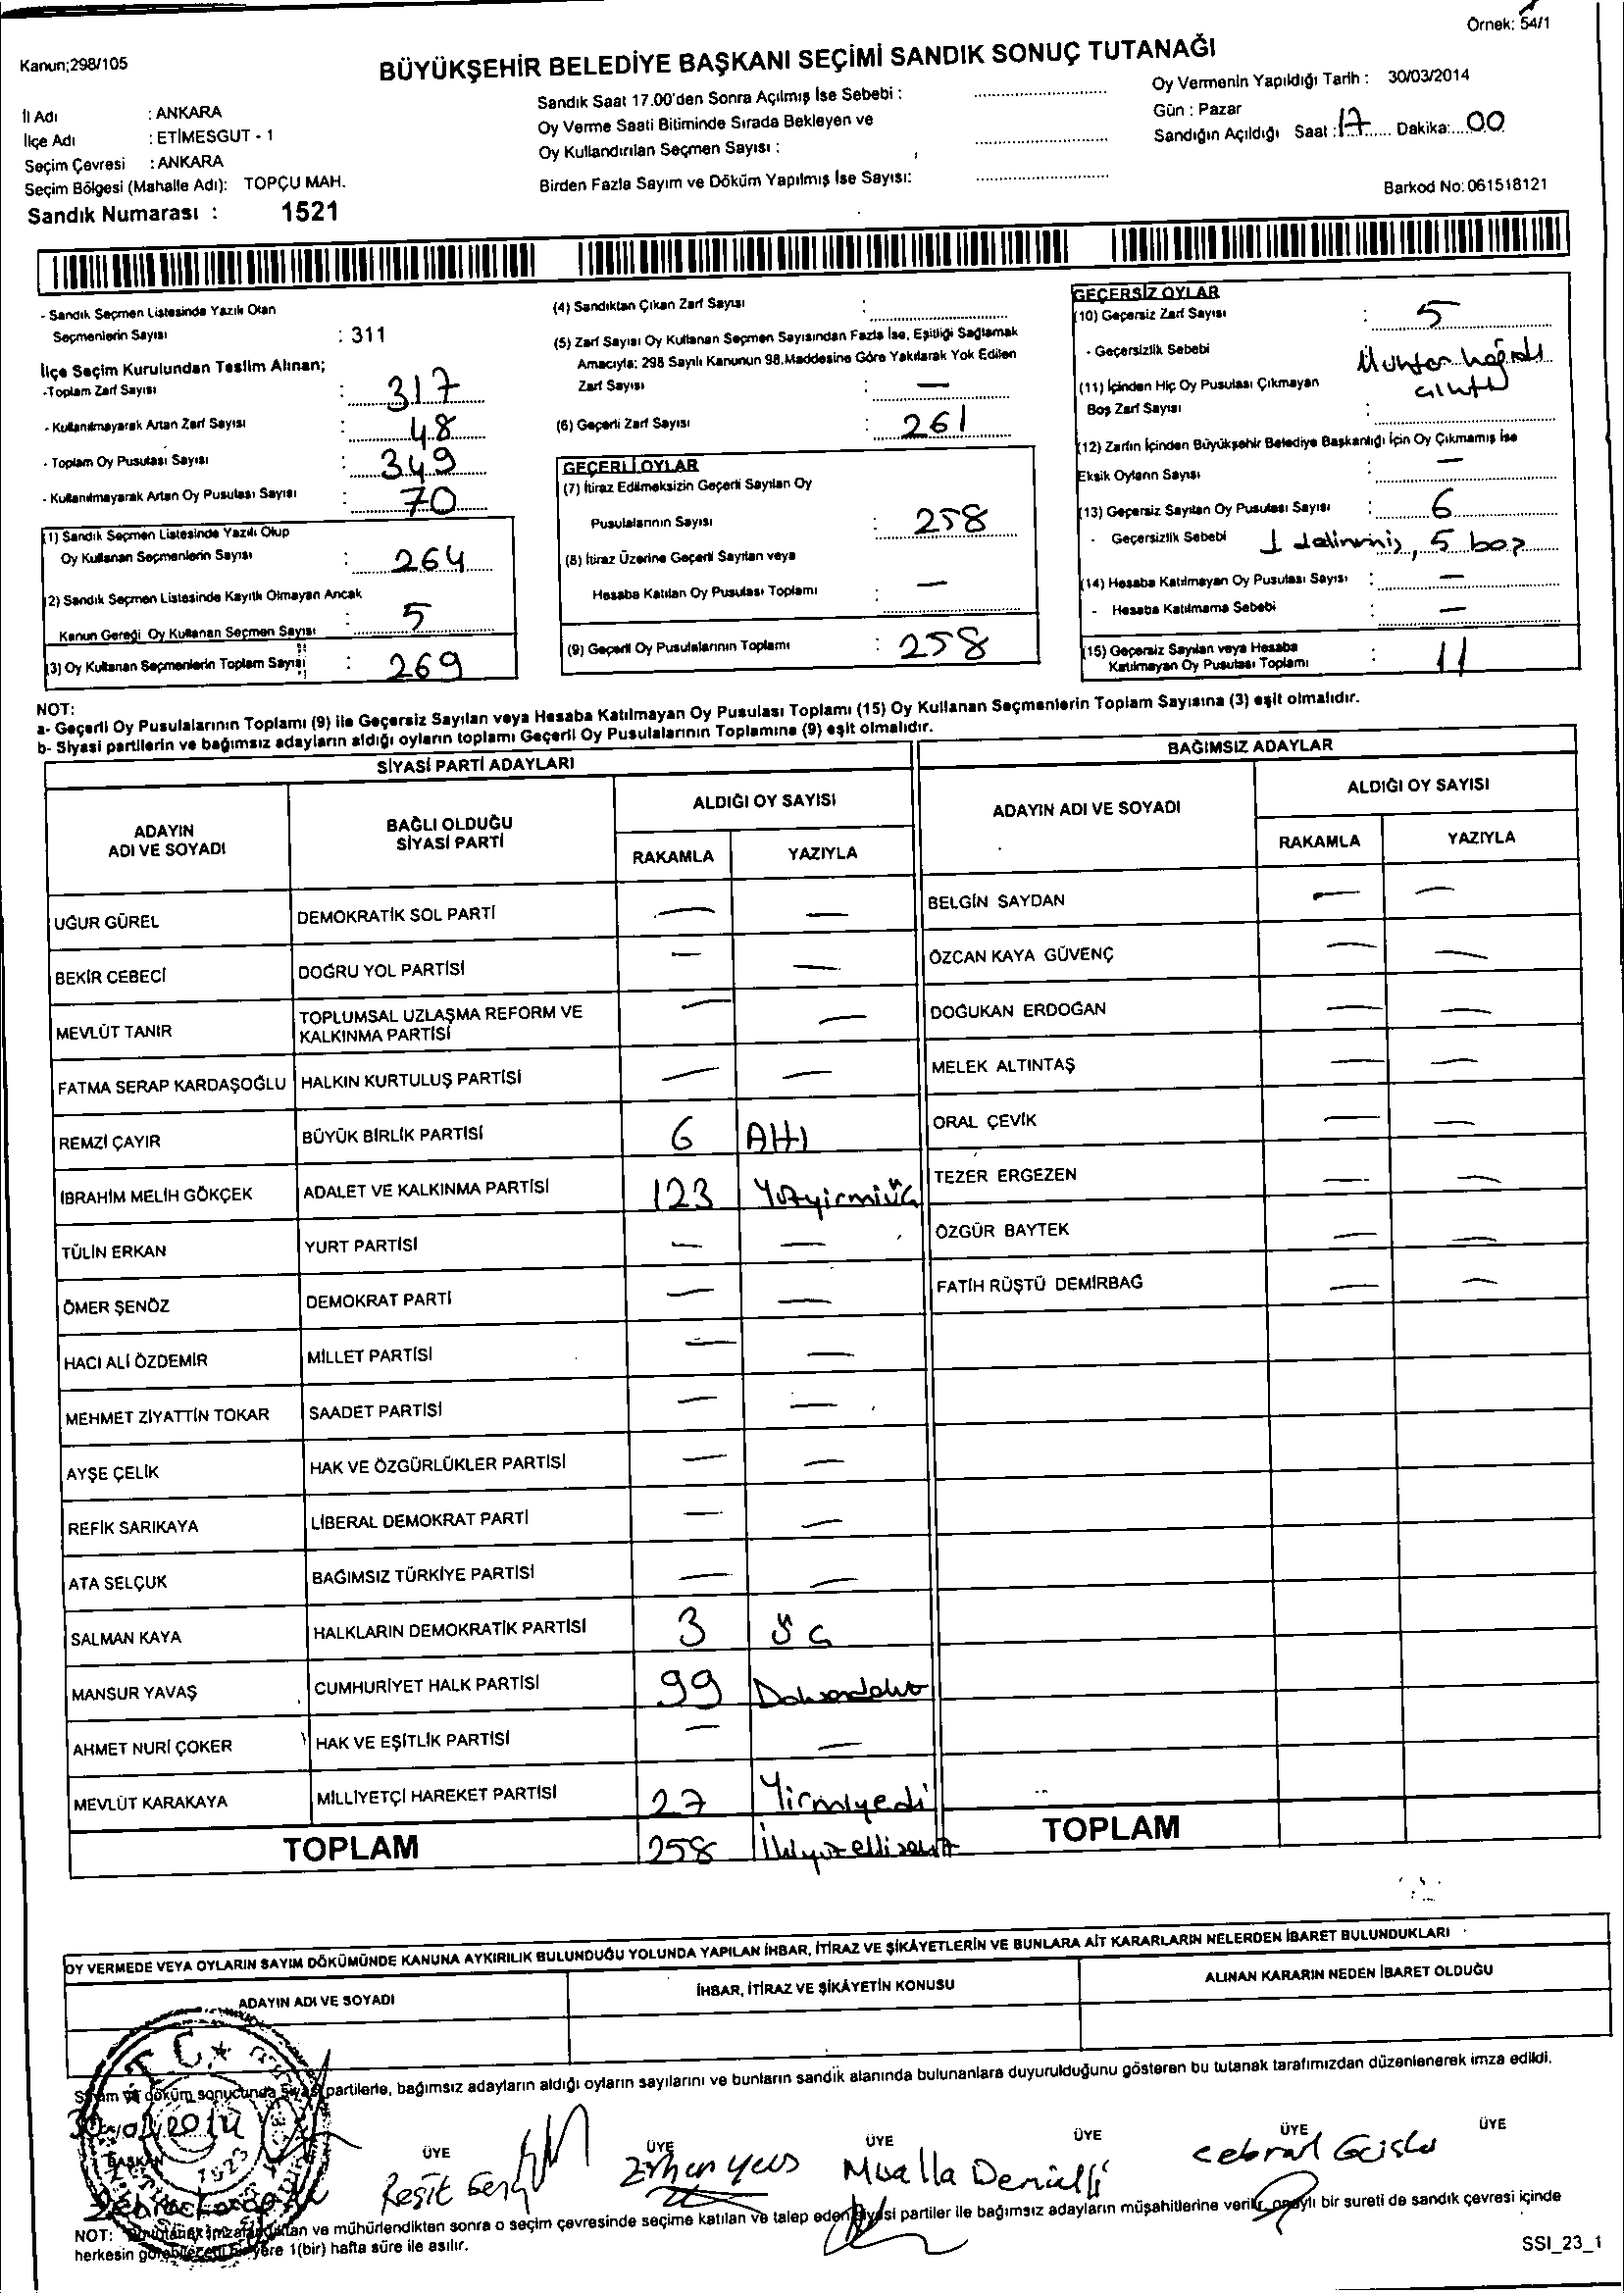 Örnek: 54/1
Kanun;298/105
BÜYÜKŞEHİR BELEDİYE BAŞKANI SEÇİMİ SANDIK SONUÇ TUTANAĞI
İl Adı : ANKARA
İlçe Adı : ETİMESGUT - 1
Seçim Çevresi : ANKARA
Seçim Bölgesi (Mahalle Adı): TOPÇU MAH.
Sandık Numarası : 1521
Sandık Saat 17.00'den Sonra Açılmış İse Sebebi :
Oy Verme Saati Bitiminde Sırada Bekleyen ve
Oy Kullandırılan Seçmen Sayısı :
Birden Fazla Sayım ve Döküm Yapılmış İse Sayısı:
Oy Vermenin Yapıldığı Tarih : 30/03/2014
Gün : Pazar
Sandığın Açıldığı Saat : 17 Dakika: 00
Barkod No: 061518121
- Sandık Seçmen Listesinde Yazılı Olan
Seçmenlerin Sayısı : 311
İlçe Seçim Kurulundan Teslim Alınan;
-Toplam Zarf Sayısı : 317
- Kullanılmayarak Artan Zarf Sayısı : 48
- Toplam Oy Pusulası Sayısı : 349
- Kullanılmayarak Artan Oy Pusulası Sayısı : 70
(1) Sandık Seçmen Listesinde Yazılı Olup
Oy Kullanan Seçmenlerin Sayısı : 264
(2) Sandık Seçmen Listesinde Kayıtlı Olmayan Ancak
Kanun Gereği Oy Kullanan Seçmen Sayısı : 5
(3) Oy Kullanan Seçmenlerin Toplam Sayısı : 269
(4) Sandıktan Çıkan Zarf Sayısı :
(5) Zarf Sayısı Oy Kullanan Seçmen Sayısından Fazla İse, Eşitliği Sağlamak
Amacıyla: 298 Sayılı Kanunun 98.Maddesine Göre Yakılarak Yok Edilen
Zarf Sayısı : —
(6) Geçerli Zarf Sayısı : 261
GEÇERLİ OYLAR
(7) İtiraz Edilmeksizin Geçerli Sayılan Oy
Pusulalarının Sayısı : 258
(8) İtiraz Üzerine Geçerli Sayılan veya
Hesaba Katılan Oy Pusulası Toplamı : —
(9) Geçerli Oy Pusulalarının Toplamı : 258
GEÇERSİZ OYLAR
(10) Geçersiz Zarf Sayısı : 5
- Geçersizlik Sebebi Muhtar kağıdı
çıktı
(11) İçinden Hiç Oy Pusulası Çıkmayan
Boş Zarf Sayısı :
(12) Zarfın İçinden Büyükşehir Belediye Başkanlığı İçin Oy Çıkmamış İse
Eksik Oyların Sayısı : —
(13) Geçersiz Sayılan Oy Pusulası Sayısı : 6
- Geçersizlik Sebebi 1 delinmiş, 5 boş
(14) Hesaba Katılmayan Oy Pusulası Sayısı : —
- Hesaba Katılmama Sebebi : —
(15) Geçersiz Sayılan veya Hesaba
Katılmayan Oy Pusulası Toplamı : 11
NOT:
a- Geçerli Oy Pusulalarının Toplamı (9) ile Geçersiz Sayılan veya Hesaba Katılmayan Oy Pusulası Toplamı (15) Oy Kullanan Seçmenlerin Toplam Sayısına (3) eşit olmalıdır.
b- Siyasi partilerin ve bağımsız adayların aldığı oyların toplamı Geçerli Oy Pusulalarının Toplamına (9) eşit olmalıdır.
SİYASİ PARTİ ADAYLARI
ADAYIN
ADI VE SOYADI
BAĞLI OLDUĞU
SİYASİ PARTİ
ALDIĞI OY SAYISI
RAKAMLA YAZIYLA
UĞUR GÜREL DEMOKRATİK SOL PARTİ — —
BEKİR CEBECİ DOĞRU YOL PARTİSİ — —
MEVLÜT TANIR TOPLUMSAL UZLAŞMA REFORM VE
KALKINMA PARTİSİ — —
FATMA SERAP KARDAŞOĞLU HALKIN KURTULUŞ PARTİSİ — —
REMZİ ÇAYIR BÜYÜK BİRLİK PARTİSİ 6 Altı
İBRAHİM MELİH GÖKÇEK ADALET VE KALKINMA PARTİSİ 123 Yüzyirmiüç
TÜLİN ERKAN YURT PARTİSİ — —
ÖMER ŞENÖZ DEMOKRAT PARTİ — —
HACI ALİ ÖZDEMİR MİLLET PARTİSİ — —
MEHMET ZİYATTİN TOKAR SAADET PARTİSİ — —
AYŞE ÇELİK HAK VE ÖZGÜRLÜKLER PARTİSİ — —
REFİK SARIKAYA LİBERAL DEMOKRAT PARTİ — —
ATA SELÇUK BAĞIMSIZ TÜRKİYE PARTİSİ — —
SALMAN KAYA HALKLARIN DEMOKRATİK PARTİSİ 3 Üç
MANSUR YAVAŞ CUMHURİYET HALK PARTİSİ 99 Doksandokuz
AHMET NURİ ÇOKER HAK VE EŞİTLİK PARTİSİ — —
MEVLÜT KARAKAYA MİLLİYETÇİ HAREKET PARTİSİ 27 Yirmiyedi
TOPLAM 258 İkiyüzellisekiz
BAĞIMSIZ ADAYLAR
ADAYIN ADI VE SOYADI
ALDIĞI OY SAYISI
RAKAMLA YAZIYLA
BELGİN SAYDAN — —
ÖZCAN KAYA GÜVENÇ — —
DOĞUKAN ERDOĞAN — —
MELEK ALTINTAŞ — —
ORAL ÇEVİK — —
TEZER ERGEZEN — —
ÖZGÜR BAYTEK — —
FATİH RÜŞTÜ DEMİRBAĞ — —
TOPLAM
OY VERMEDE VEYA OYLARIN SAYIM DÖKÜMÜNDE KANUNA AYKIRILIK BULUNDUĞU YOLUNDA YAPILAN İHBAR, İTİRAZ VE ŞİKÂYETLERİN VE BUNLARA AİT KARARLARIN NELERDEN İBARET BULUNDUKLARI
ADAYIN ADI VE SOYADI İHBAR, İTİRAZ VE ŞİKÂYETİN KONUSU ALINAN KARARIN NEDEN İBARET OLDUĞU
T.C.
Sayım ve döküm sonucunda siyasi partilerle, bağımsız adayların aldığı oyların sayılarını ve bunların sandık alanında bulunanlara duyurulduğunu gösteren bu tutanak tarafımızdan düzenlenerek imza edildi.
BAŞKAN ÜYE ÜYE ÜYE ÜYE ÜYE ÜYE
Reşit
NOT: Bu tutanak imzalandıktan ve mühürlendikten sonra o seçim çevresinde seçime katılan ve talep eden siyasi partiler ile bağımsız adayların müşahitlerine verilir, onaylı bir sureti de sandık çevresi içinde
herkesin görebileceği bir yere 1(bir) hafta süre ile asılır.
SSI_23_1